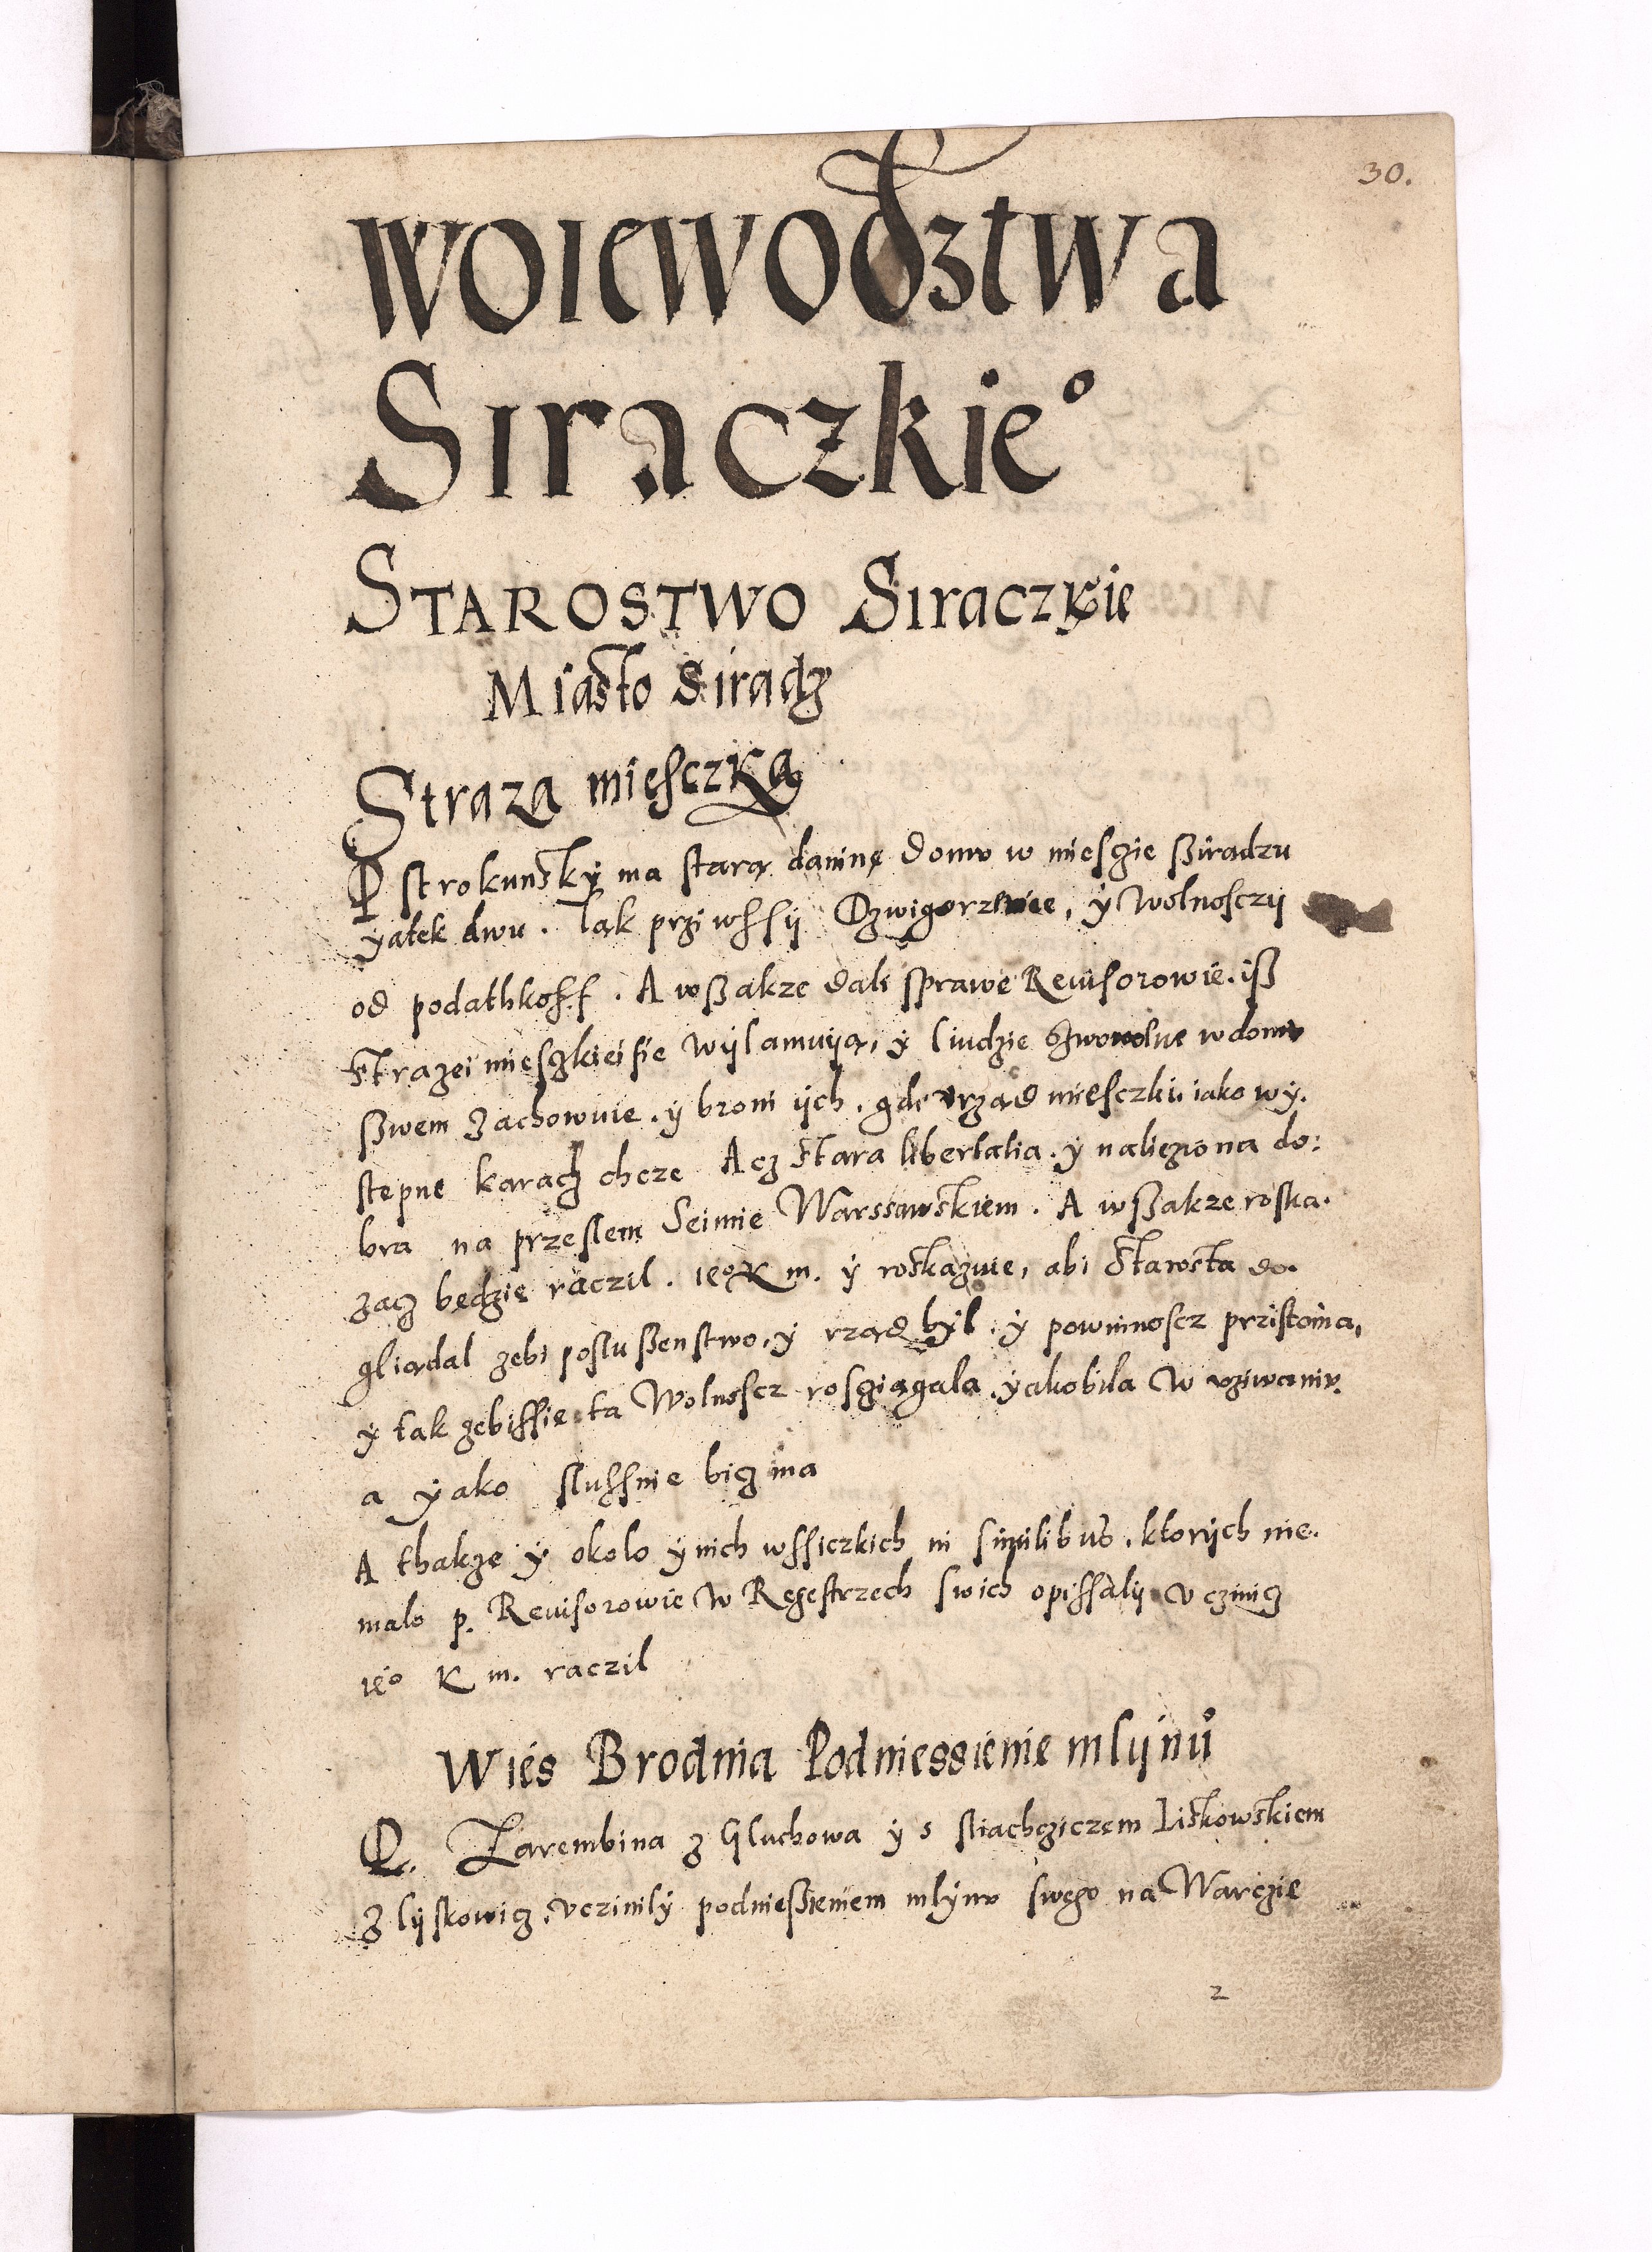 30.
Woiewodztwa
Siraczkie°
Starostwo Siraczkie
Miasto Siradz
Straza miesczka
Pstrokunsky ma starą daninę domu w miescie Siradzu
yatek dwu. Tak przi wssij Dzwigorzewie, ÿ Wolnosczij
od podathkoff. A wßakze dali sprawe Reuisorowie. iß
strazei mieszkiei sie wÿlamuiją, ÿ liudzie swowolne w domu
ßwem zachowuie. ÿ broni ijch. gdi vrzad miesczki. iako wÿ.
stepne karacz chcze Acz stara libertatia. ÿ nalieziona do:
bra na przeslem Seimie Warssawskiem. A wßakze roska.
zacz będzie raczil. ie° K m. ÿ roskazuie, abi starosta do.
gliadal zebi posłußenstwo, ÿ rzad bÿl. ÿ powinnoscz przistoina,
ÿ tak zebissie ta Wolnoscz rosciągala. ÿako bila w vziwaniu.
a ÿako slussnie bicz ma
A thakze ÿ okolo ÿnich wssiczkich in similibus. ktorijch nie.
malo p. Reuisorowie w Regestrzech swich opissalij vczinicz
ie° K m. raczil
Wies Brodnia Podniessienie mlijnu
Q. Zarembina z Gluchowa ÿ s sliachcziczem Liskowskiem
z lijskowicz. vczinilÿ podnießieniem mlÿnu swego na Warczie
2